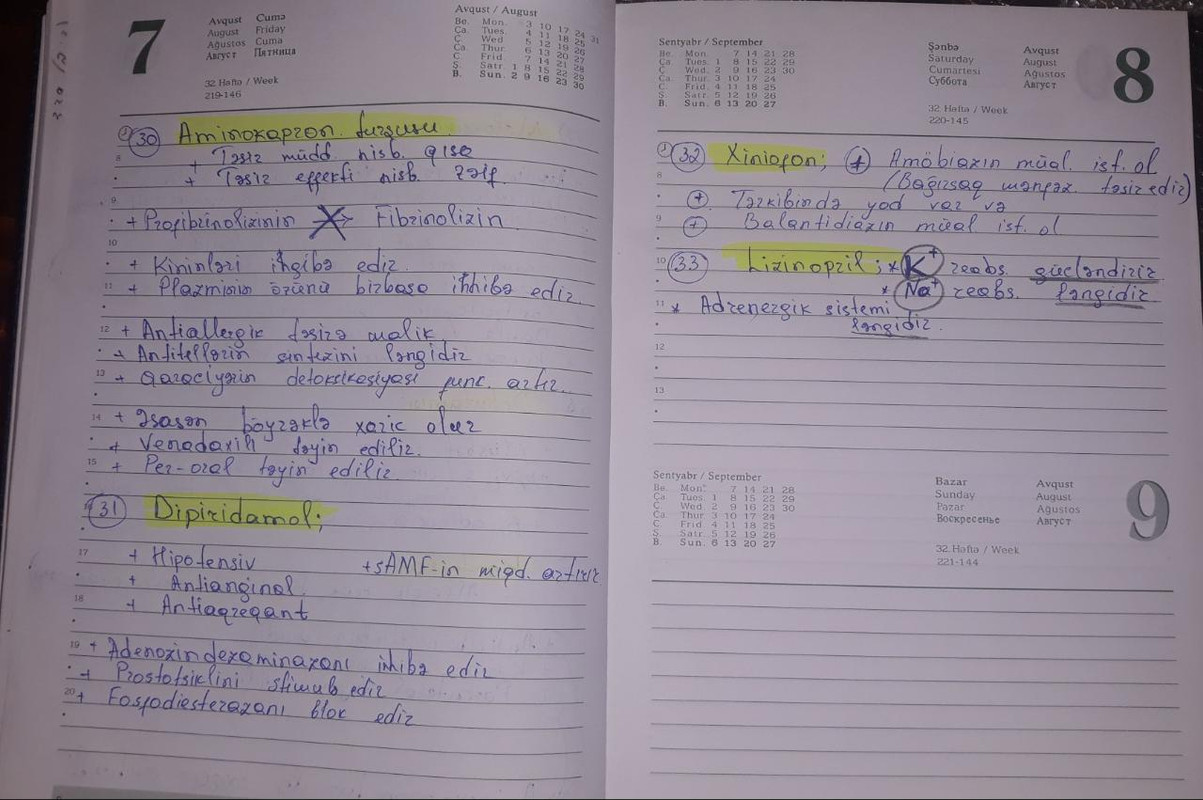 7
Avqust Cumə
August Friday
Ağustos Cuma
Август Пятница
32 Həftə / Week
219-146
Avqust / August
Be. Mon. 3 10 17 24 31
Ça. Tues. 4 11 18 25
Ç. Wed. 5 12 19 26
Ca. Thur. 6 13 20 27
C. Frid. 7 14 21 28
Ş. Satr. 1 8 15 22 29
B. Sun. 2 9 16 23 30
30 Aminokapron turşusu
8 + Təsir müdd nisb. qısa
+ Təsir effekti nisb. zəif.
9
+ Profibrinolizinin Fibrinolizin
10
+ Kininləri ingibə edir.
11 + Plazminin özünü birbaşa inhibə edir.
12 + Antiallergik təsirə malik
+ Antitellərin sintezini ləngidir
13 + Qaraciyərin detoksikasiyası func. artır.
14 + Əsasən böyrəklə xaric olur
+ Venadaxili təyin edilir.
15 + Per-oral təyin edilir.
31 Dipiridamol;
17 + Hipotensiv + sAMF-in miqd. artırır
+ Antianginal
18 + Antiaqreqant
19 + Adenozindezaminazanı inhibə edir
+ Prostotsiklini stimulə edir
20 + Fosfodiesterazanı blok edir
Sentyabr / September
Be. Mon. 7 14 21 28
Ça. Tues. 1 8 15 22 29
Ç. Wed. 2 9 16 23 30
Ca. Thur. 3 10 17 24
C. Frid. 4 11 18 25
Ş. Satr. 5 12 19 26
B. Sun. 6 13 20 27
Şənbə Avqust
Saturday August
Cumartesi Ağustos
Суббота Август
32 Həftə / Week
220-145
8
32 Xiniofon; + Amöbiazın müal. ist. ol
8 (Bağırsaq mənfəz. təsir edir)
+ Tərkibində yod var və
9 + Balantidiazın müal ist. ol
10 33 Lizinopril; * K+ reabs. gücləndirir
* Na+ reabs. ləngidir
11 * Adrenergik sistemi
ləngidir.
12
13
Sentyabr / September
Be. Mon. 7 14 21 28
Ça. Tues. 1 8 15 22 29
Ç. Wed. 2 9 16 23 30
Ca. Thur. 3 10 17 24
C. Frid. 4 11 18 25
Ş. Satr. 5 12 19 26
B. Sun. 6 13 20 27
Bazar Avqust
Sunday August
Pazar Ağustos
Воскресенье Август
32 Həftə / Week
221-144
9